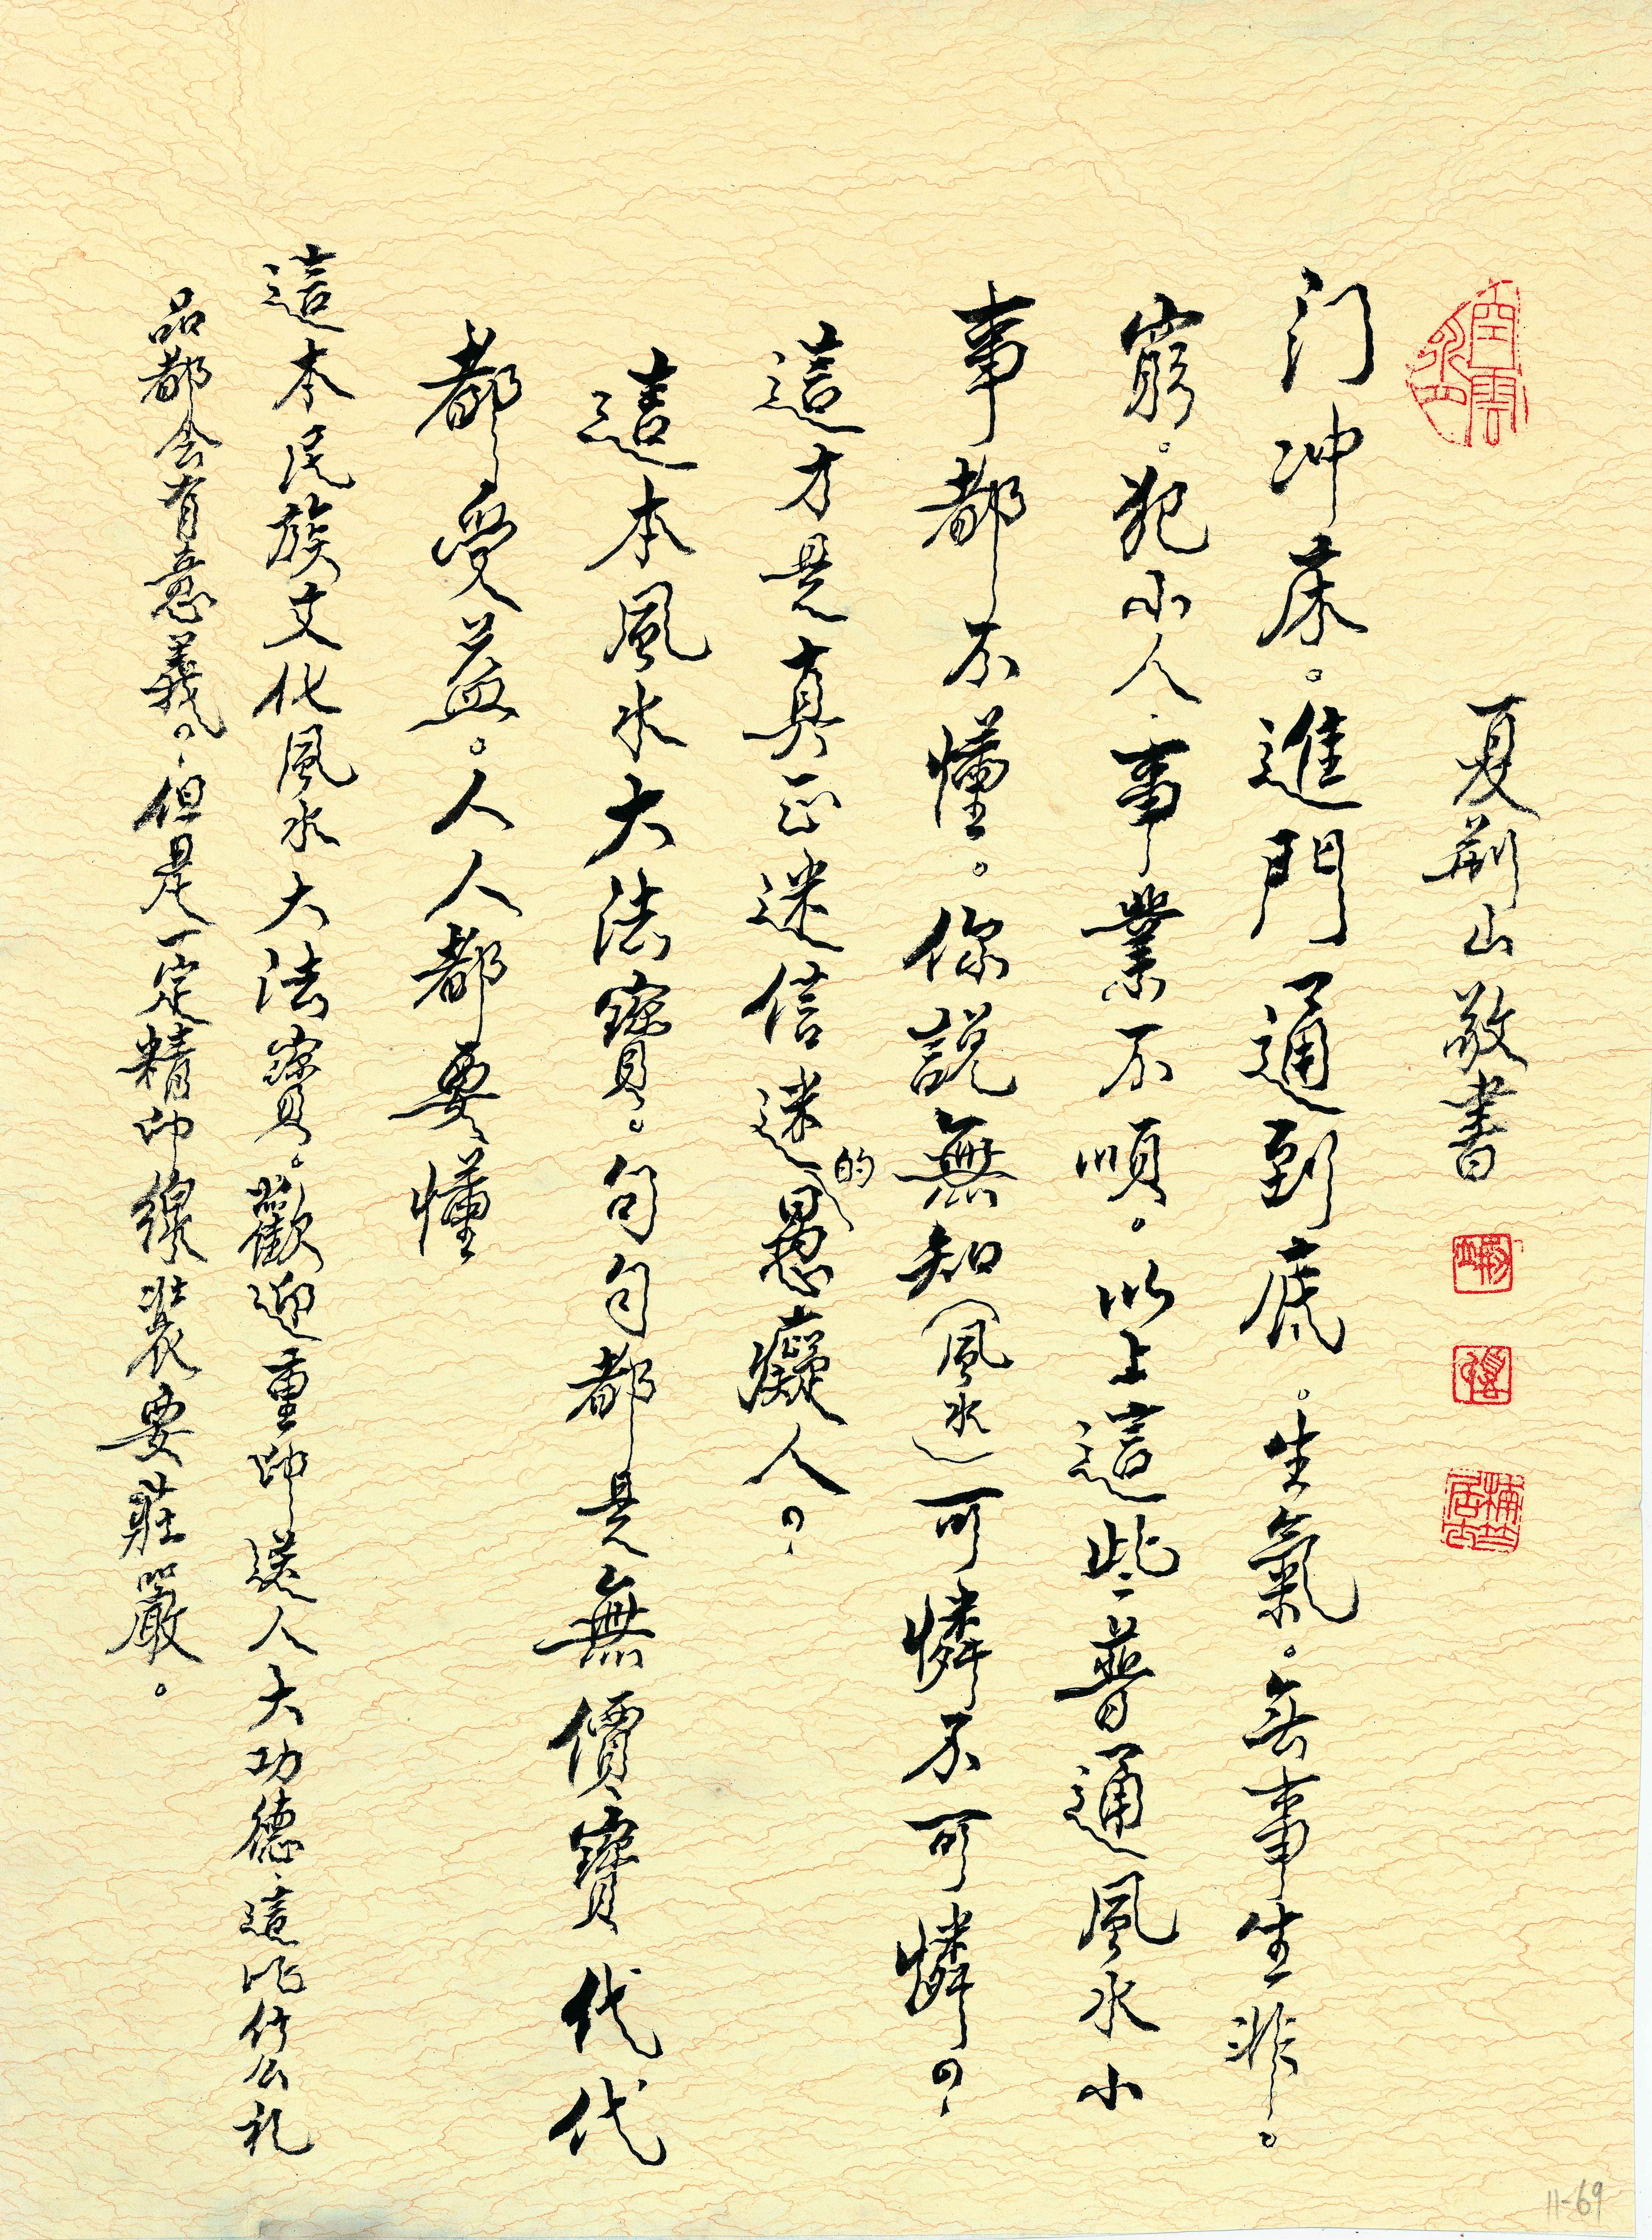 夏荆山敬書
门冲床。進門通到底。生氣。無事生非。
窮。犯小人、事業不順。以上這些普通風水小
事都不懂。你説無知（風水）可憐不可憐？
這才是真正迷信迷的愚癡人？
這本風水大法寶。句句都是無價寶代代
都受益。人人都要懂
這本民族文化風水大法寶。歡迎重印送人大功德、這比什么礼
品都会有意義？但是一定精印線装要莊嚴。
11-69